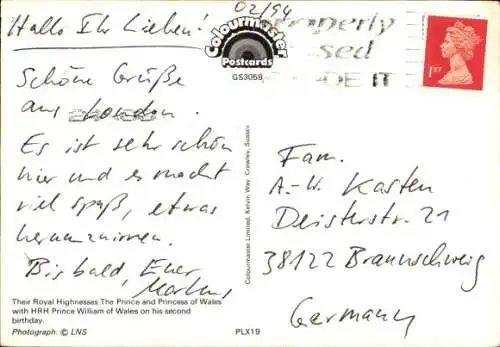 Hallo Ihr Lieben!
02/94
Colourmaster
Postcards
GS3058
operly
sed
DE IT
1ST
Schöne Grüße
aus London.
Es ist sehr schön
hier und es macht
viel Spaß, etwas
herumzuirren.
Bis bald, Euer
Markus
Colourmaster Limited, Kelvin Way, Crawley, Sussex
Fam.
A.-W. Kasten
Deisterstr. 21
38122 Braunschweig
Germany
Their Royal Highnesses The Prince and Princess of Wales
with HRH Prince William of Wales on his second
birthday.
Photograph: © LNS
PLX19